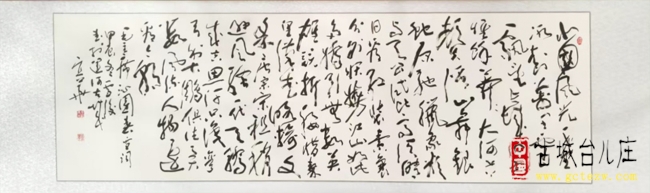 北国风光千里
冰封万里雪
飘望长城内外
惟余莽莽大河上下
顿失滔滔山舞银
蛇原驰蜡象欲
与天公试比高须晴
日看红装素裹
分外妖娆江山如此
多娇引无数英
雄竞折腰惜秦
皇汉武略输文
采唐宗宋祖稍
逊风骚一代天骄
成吉思汗只识弯
弓射大雕俱往矣
数风流人物还
看今朝
毛主席沁园春雪一词
中国
古城台儿庄
www.gctezw.com